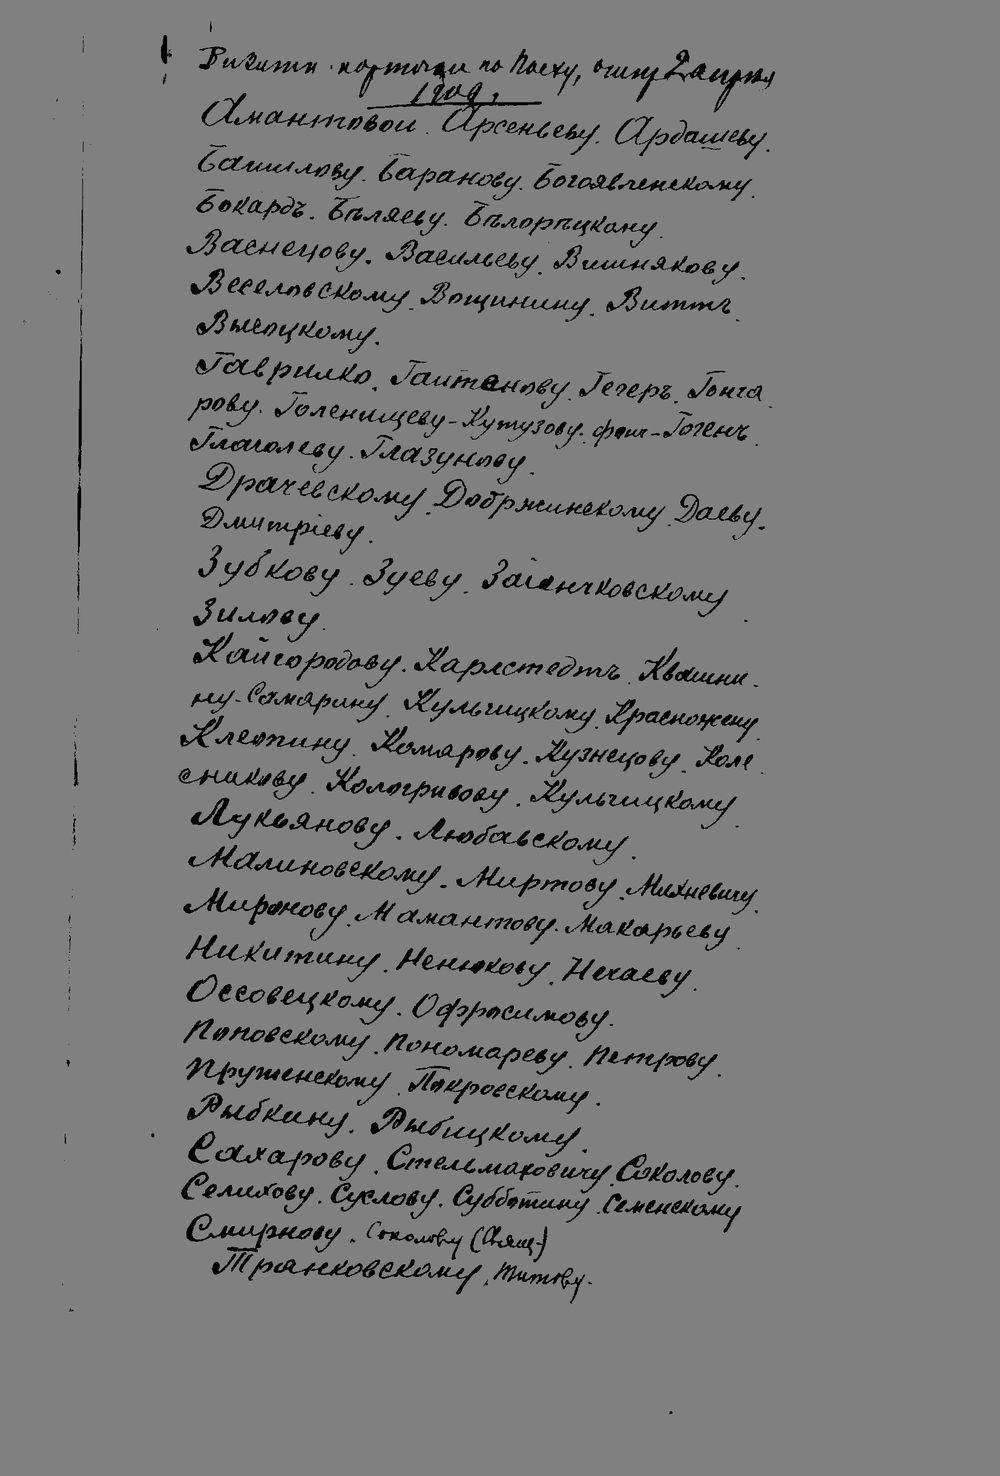 Визитн. карточки на Пасху, 2 апреля
1909.
Амантовой. Арсеньеву. Ардашеву.
Башилову. Баранову. Богоявленскому.
Бокардъ. Бѣляеву. Бѣлорѣцкому.
Васнецову. Васильеву. Вишнякову.
Веселовскому. Вощинину. Виттъ.
Высоцкому.
Гаврилко. Гайтанову. Гегеръ. Гонча
рову. Голенищеву-Кутузову. фонъ-Гогенъ.
Глаголеву. Глазунову.
Драчевскому. Добржинскому. Даеву.
Дмитріеву.
Зубкову. Зуеву. Заіончковскому
Зилову.
Кайгородову. Карлстедтъ. Квашни-
ну-Самарину. Кульчицкому. Красножену.
Клепину. Комарову. Кузнецову. Коле
сникову. Кологривову. Кульчицкому.
Лукьянову. Любавскому.
Малиновскому. Миртову. Михневичу.
Миронову. Мамантову. Макарьеву.
Никитину. Ненюкову. Нечаеву.
Оссовецкому. Офросимову.
Поповскому. Пономареву. Петрову.
Пруженскому. Покровскому.
Рыбкину. Рыбицкому.
Сахарову. Стельмаховичу. Соколову.
Селихову. Суслову. Субботину. Семенскому
Смирнову. Соколову (Свящ.)
Транковскому. Титову.